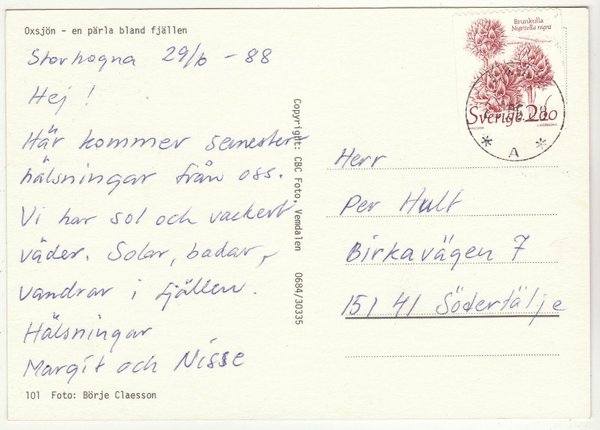 Oxsjön - en pärla bland fjällen
Storhogna 29/6 -88
Hej!
Här kommer semester
hälsningar från oss.
Vi har sol och vackert
väder. Solar, badar,
vandrar i fjällen.
Hälsningar
Margit och Nisse
101 Foto: Börje Claesson
Copyright: CBC Foto, Vemdalen 0684/30335
Brunkulla
Nigritella nigra
Sverige 2.20
A
Herr
Per Hult
Birkavägen 7
151 41 Södertälje